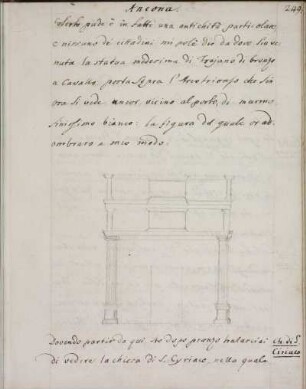 Ancona.
244
pude è in fatti una antichità particolare
e nissuno de' cittadini mi
nata la statua medesima di Trajano di bronzo
a Cavallo posta sopra l'Arco trionfo che sin
ora si vede ancor vicino al porto, di marmo
finissimo bianco: la figura del quale ec ad
ombraro a mio modo.
Dovendo partir da qui ho dopo pranzo
di vedere la chiesa di S. Cyriaco, nella quale
ch. di S.
Ciriaco